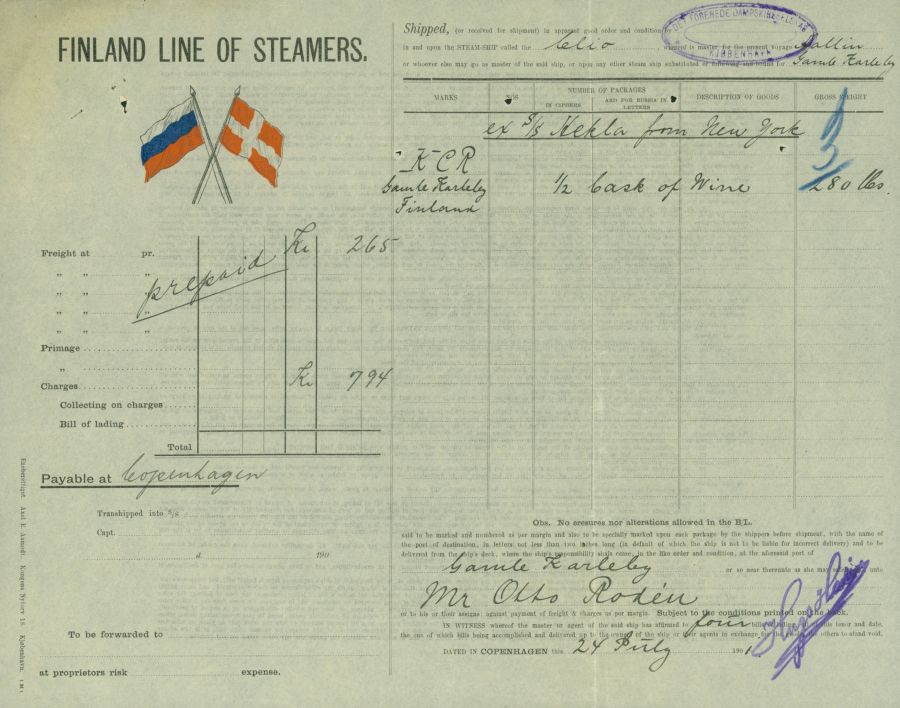 FINLAND LINE OF STEAMERS.
Shipped, (or received for shipment) in apparent good order and condition by
DET FORENEDE DAMPSKIBSSELSKAB
KJØBENHAVN
in and upon the STEAM-SHIP called the Clio whereof is master, for the present voyage Sallin
or whoever else may go as master of the said ship, or upon any other steam ship substituted or following and bound for Gamle Karleby
MARKS
NOS
NUMBER OF PACKAGES
IN CIPHERS
AND FOR RUSSIA IN LETTERS
DESCRIPTION OF GOODS
GROSS WEIGHT
3
ex S/S Hekla from New York
K C R
Gamle Karleby
Finland
1/2 Cask of Wine
280 lbs.
Freight at pr. Kr 265
„ „ „
„ „ „
„ „ „
„ „ „
prepaid
Primage
„
Charges Kr 794
Collecting on charges
Bill of lading
Total
Payable at Copenhagen
Transshipped into S/S
Capt.
d. 190
To be forwarded to
at proprietors risk expense.
Eneberettiget Axel E. Aamodt Kongens Nytorv 18 Kjøbenhavn.
Obs. No erasures nor alterations allowed in the B/L.
said to be marked and numbered as per margin and also to be specially marked upon each package by the shippers before shipment, with the name of
the port of destination, in letters not less than two inches long (in default of which the ship is not to be liable for incorrect delivery) and to be
delivered from the ship's deck, where the ship's responsibility shall cease, in the like order and condition, at the aforesaid port of
Gamle Karleby or so near thereunto as she may unto
Mr Otto Rodén
or to his or their assigns: against payment of freight & charges as per margin. Subject to the conditions printed on the back.
IN WITNESS whereof the master or agent of the said ship has affirmed to four bills of lading, all of this tenor and date,
the one of which bills being accomplished and delivered up to the owner of the ship or their agents in exchange for the goods, the others to stand void.
DATED IN COPENHAGEN this 24 July 1901